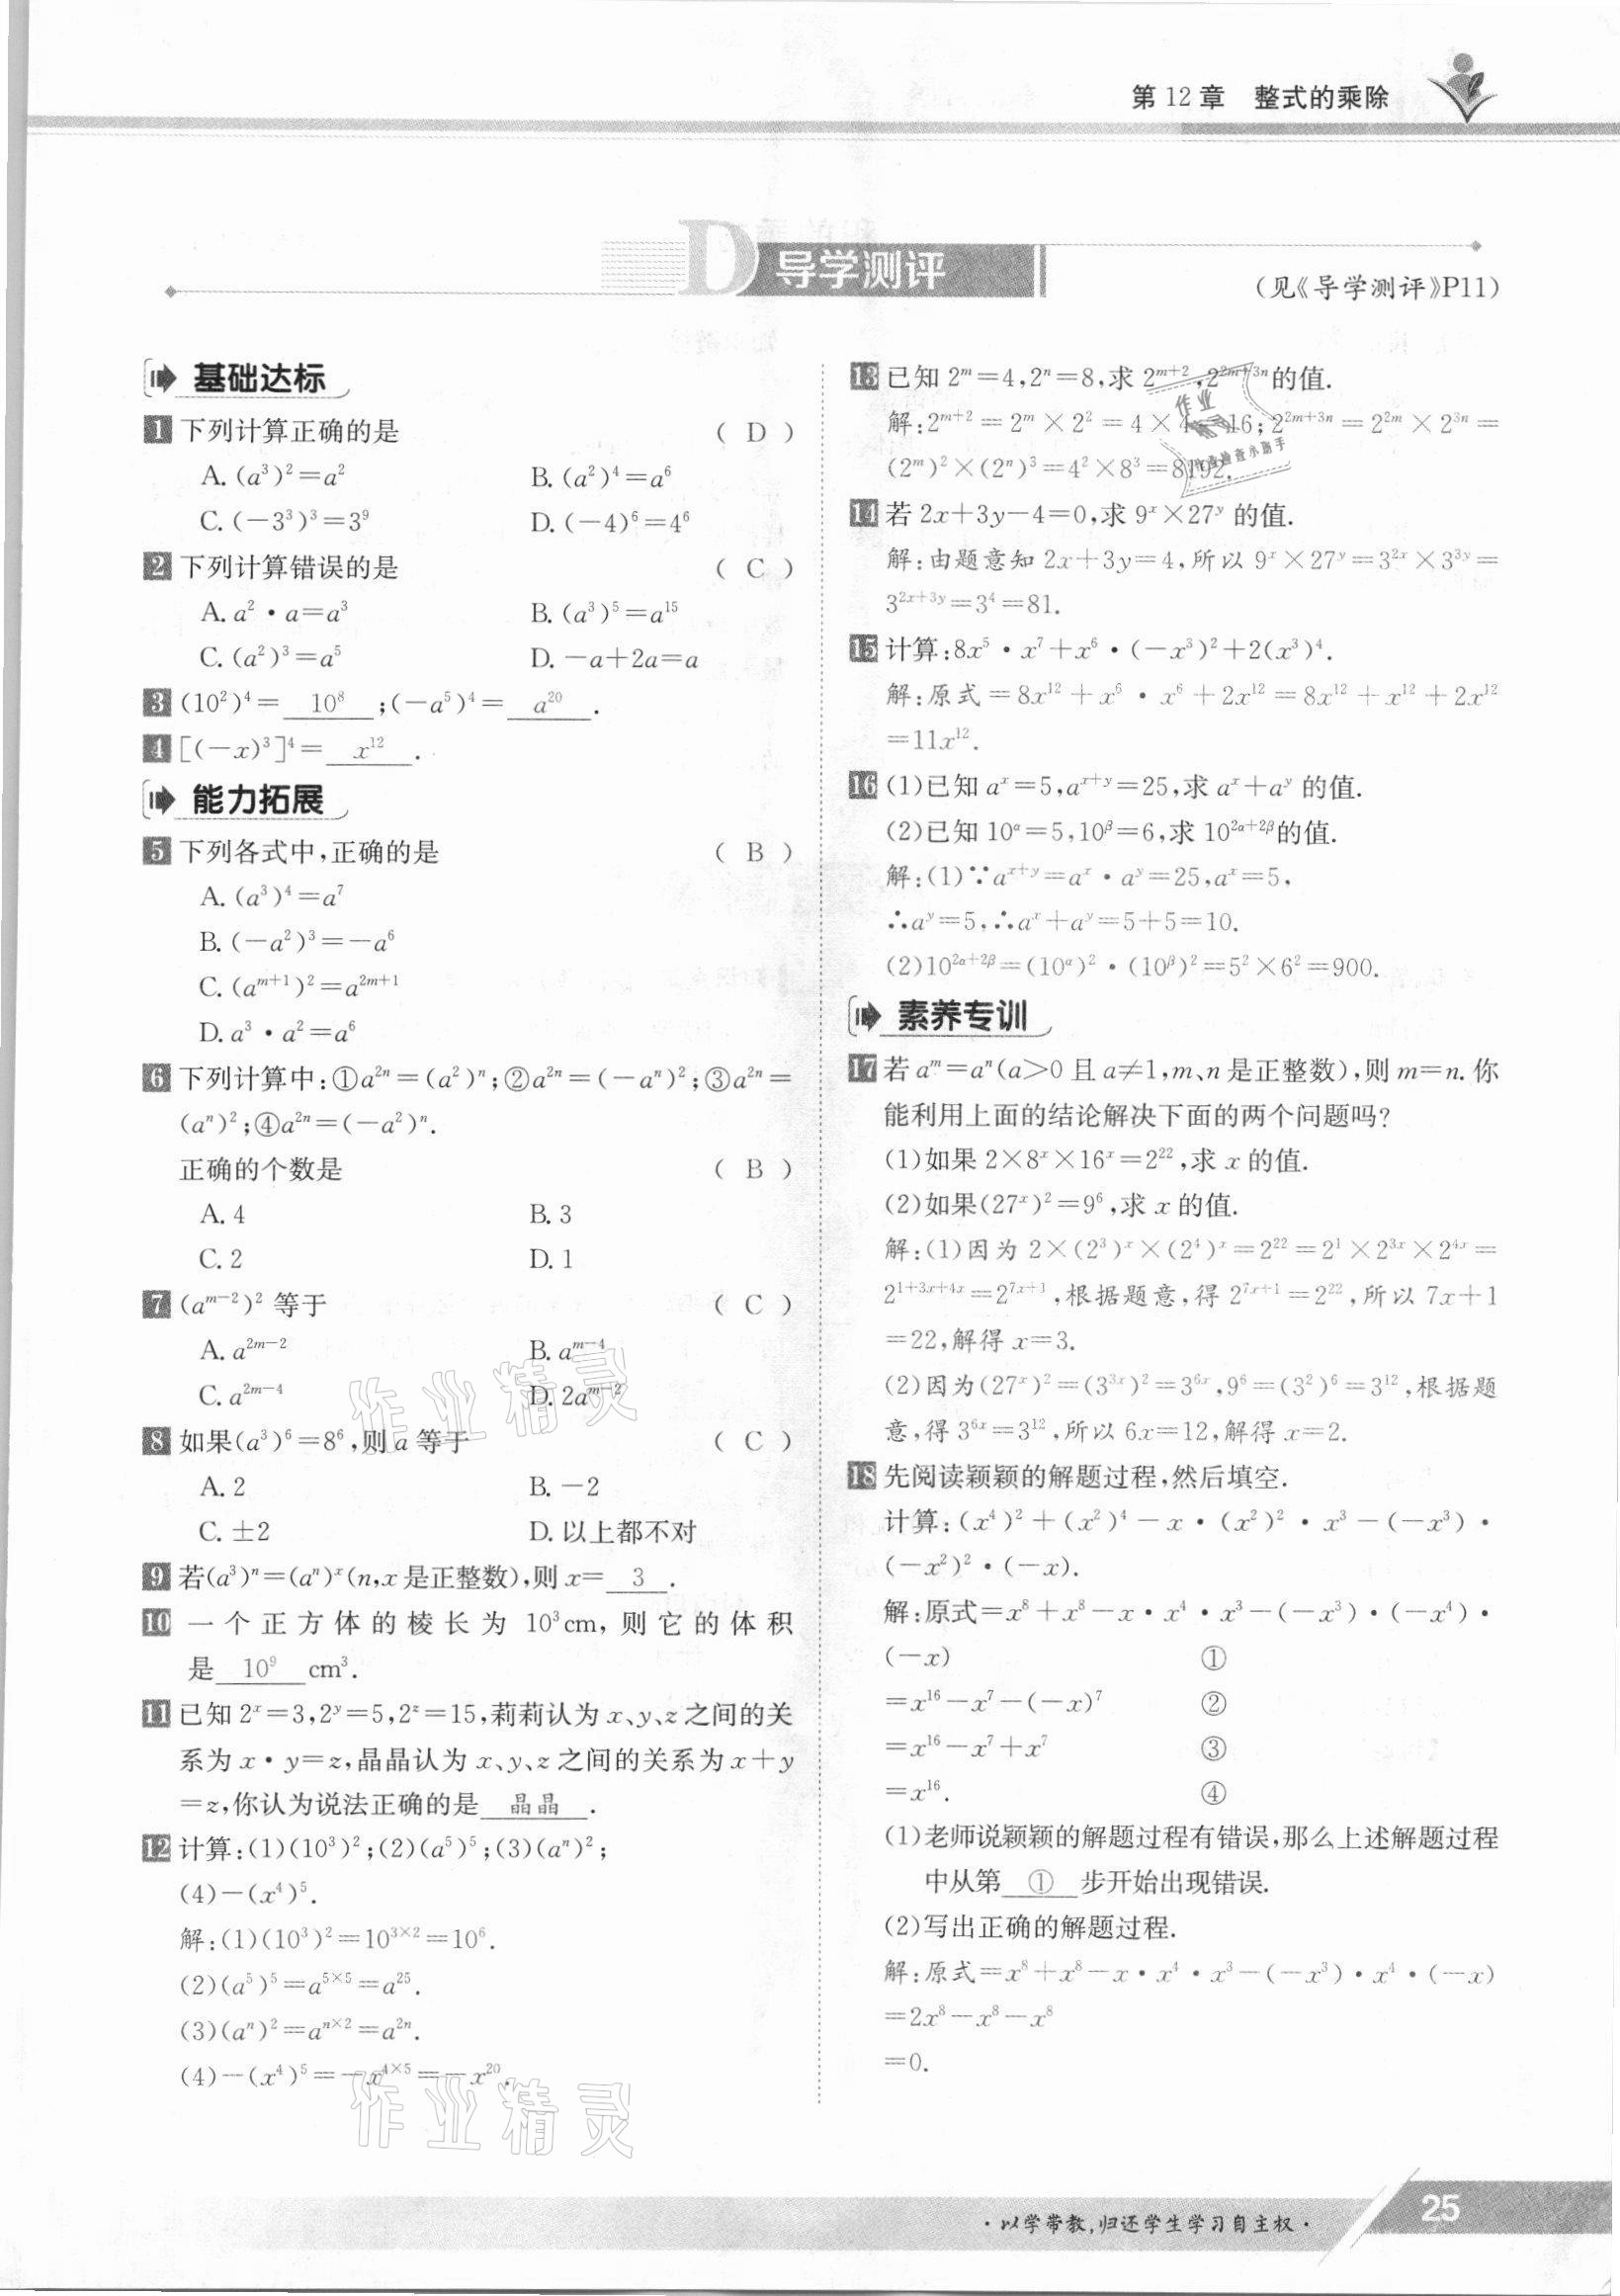 第 12 章　整式的乘除
D 导学测评
(见《导学测评》P11)
基础达标
1 下列计算正确的是 ( D )
A. (a³)²=a² B. (a²)⁴=a⁶
C. (-3³)³=3⁹ D. (-4)⁶=4⁶
2 下列计算错误的是 ( C )
A. a²·a=a³ B. (a³)⁵=a¹⁵
C. (a²)³=a⁵ D. -a+2a=a
3 (10²)⁴= 10⁸ ;(-a⁵)⁴= a²⁰ .
4 [(-x)³]⁴= x¹² .
能力拓展
5 下列各式中,正确的是 ( B )
A. (a³)⁴=a⁷
B. (-a²)³=-a⁶
C. (aᵐ⁺¹)²=a²ᵐ⁺¹
D. a³·a²=a⁶
6 下列计算中:①a²ⁿ=(a²)ⁿ;②a²ⁿ=(-aⁿ)²;③a²ⁿ=
(aⁿ)²;④a²ⁿ=(-a²)ⁿ.
正确的个数是 ( B )
A. 4 B. 3
C. 2 D. 1
7 (aᵐ⁻²)² 等于 ( C )
A. a²ᵐ⁻² B. aᵐ⁻⁴
C. a²ᵐ⁻⁴ D. 2aᵐ⁻²
8 如果(a³)⁶=8⁶,则 a 等于 ( C )
A. 2 B. -2
C. ±2 D. 以上都不对
9 若(a³)ⁿ=(aⁿ)ˣ(n,x 是正整数),则 x= 3 .
10 一个正方体的棱长为 10³cm,则它的体积
是 10⁹ cm³.
11 已知 2ˣ=3,2ʸ=5,2ᶻ=15,莉莉认为 x、y、z 之间的关
系为 x·y=z,晶晶认为 x、y、z 之间的关系为 x+y
=z,你认为说法正确的是 晶晶 .
12 计算:(1)(10³)²;(2)(a⁵)⁵;(3)(aⁿ)²;
(4)-(x⁴)⁵.
解:(1)(10³)²=10³ˣ²=10⁶.
(2)(a⁵)⁵=a⁵ˣ⁵=a²⁵.
(3)(aⁿ)²=aⁿˣ²=a²ⁿ.
(4)-(x⁴)⁵=-x⁴ˣ⁵=-x²⁰.
13 已知 2ᵐ=4,2ⁿ=8,求 2ᵐ⁺²,2²ᵐ⁺³ⁿ的值.
解:2ᵐ⁺²=2ᵐ×2²=4×4=16;2²ᵐ⁺³ⁿ=2²ᵐ×2³ⁿ=
(2ᵐ)²×(2ⁿ)³=4²×8³=8192.
14 若 2x+3y-4=0,求 9ˣ×27ʸ 的值.
解:由题意知 2x+3y=4,所以 9ˣ×27ʸ=3²ˣ×3³ʸ=
3²ˣ⁺³ʸ=3⁴=81.
15 计算:8x⁵·x⁷+x⁶·(-x³)²+2(x³)⁴.
解:原式=8x¹²+x⁶·x⁶+2x¹²=8x¹²+x¹²+2x¹²
=11x¹².
16 (1)已知 aˣ=5,aˣ⁺ʸ=25,求 aˣ+aʸ 的值.
(2)已知 10^α=5,10^β=6,求 10^(2α+2β)的值.
解:(1)∵aˣ⁺ʸ=aˣ·aʸ=25,aˣ=5,
∴aʸ=5,∴aˣ+aʸ=5+5=10.
(2)10^(2α+2β)=(10^α)²·(10^β)²=5²×6²=900.
素养专训
17 若 aᵐ=aⁿ(a>0 且 a≠1,m、n 是正整数),则 m=n. 你
能利用上面的结论解决下面的两个问题吗?
(1)如果 2×8ˣ×16ˣ=2²²,求 x 的值.
(2)如果(27ˣ)²=9⁶,求 x 的值.
解:(1)因为 2×(2³)ˣ×(2⁴)ˣ=2²²=2¹×2³ˣ×2⁴ˣ=
2¹⁺³ˣ⁺⁴ˣ=2⁷ˣ⁺¹,根据题意,得 2⁷ˣ⁺¹=2²²,所以 7x+1
=22,解得 x=3.
(2)因为(27ˣ)²=(3³ˣ)²=3⁶ˣ,9⁶=(3²)⁶=3¹²,根据题
意,得 3⁶ˣ=3¹²,所以 6x=12,解得 x=2.
18 先阅读颖颖的解题过程,然后填空.
计算:(x⁴)²+(x²)⁴-x·(x²)²·x³-(-x³)·
(-x²)²·(-x).
解:原式=x⁸+x⁸-x·x⁴·x³-(-x³)·(-x⁴)·
(-x) ①
=x¹⁶-x⁷-(-x)⁷ ②
=x¹⁶-x⁷+x⁷ ③
=x¹⁶. ④
(1)老师说颖颖的解题过程有错误,那么上述解题过程
中从第 ① 步开始出现错误.
(2)写出正确的解题过程.
解:原式=x⁸+x⁸-x·x⁴·x³-(-x³)·x⁴·(-x)
=2x⁸-x⁸-x⁸
=0.
作业精灵
作业精灵
作业
作业检查小助手
·以学带教,归还学生学习自主权·
25